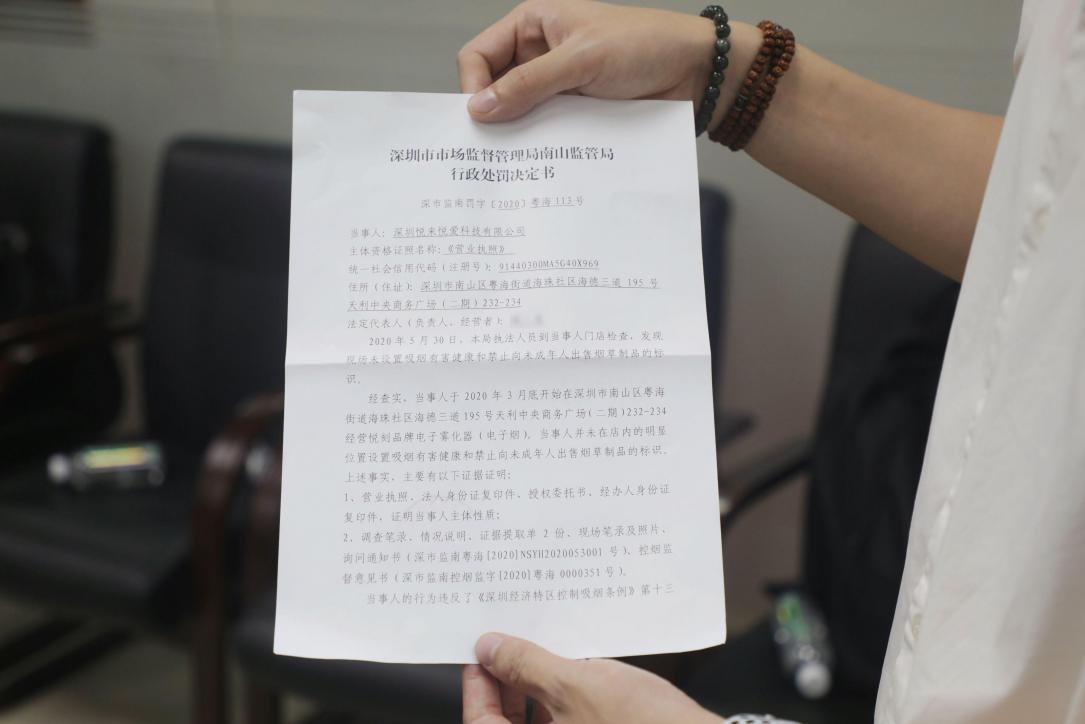 深圳市市场监督管理局南山监管局
行政处罚决定书
深市监南罚字〔2020〕粤海113号
当事人：深圳悦来悦爱科技有限公司
主体资格证照名称：《营业执照》
统一社会信用代码（注册号）：91440300MA5G40X969
住所（住址）：深圳市南山区粤海街道海珠社区海德三道 195 号
天利中央商务广场（二期）232-234
法定代表人（负责人、经营者）：
2020 年 5 月 30 日，本局执法人员到当事人门店检查，发现
现场未设置吸烟有害健康和禁止向未成年人出售烟草制品的标
识。
经查实，当事人于 2020 年 3 月底开始在深圳市南山区粤海
街道海珠社区海德三道 195 号天利中央商务广场（二期）232-234
经营悦刻品牌电子雾化器（电子烟），当事人并未在店内的明显
位置设置吸烟有害健康和禁止向未成年人出售烟草制品的标识。
上述事实，主要有以下证据证明：
1、营业执照、法人身份证复印件、授权委托书、经办人身份证
复印件，证明当事人主体性质；
2、调查笔录、情况说明、证据提取单 2 份、现场笔录及照片、
询问通知书（深市监南粤海[2020]NSYH2020053001 号）、控烟监
督意见书（深市监南控烟监字[2020]粤海 0000351 号）。
当事人的行为违反了《深圳经济特区控制吸烟条例》第十三